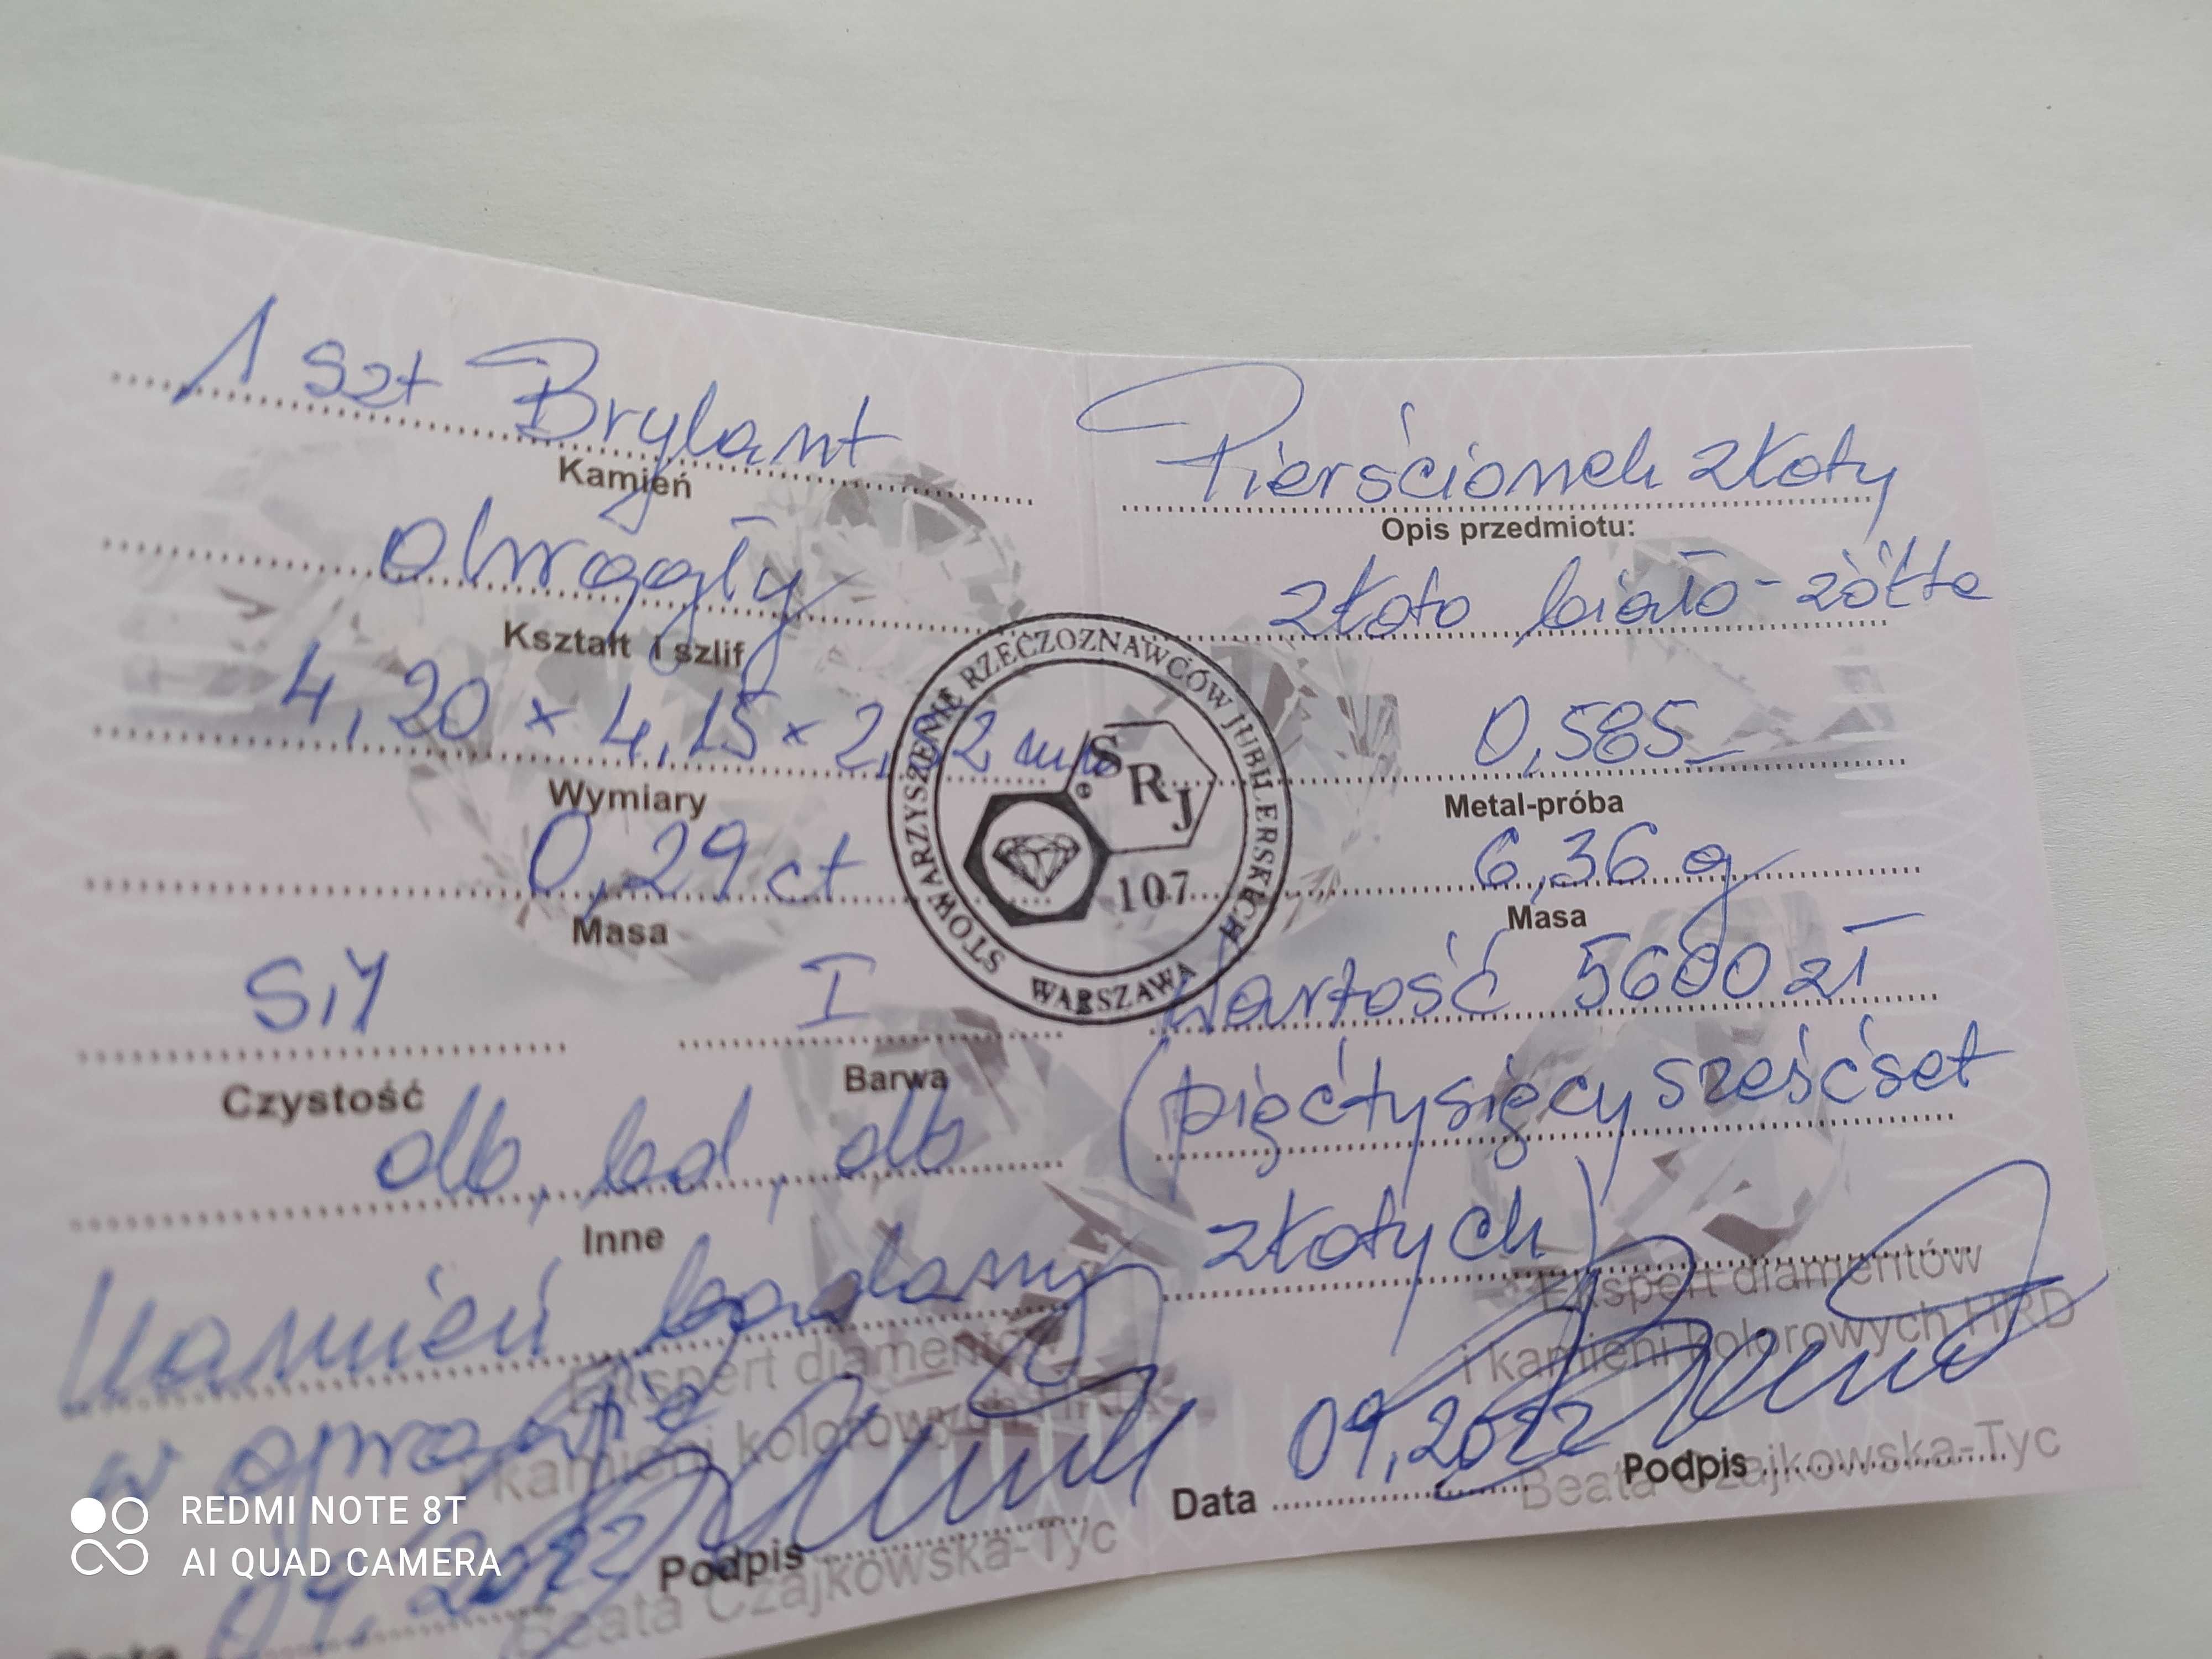 1 szt Brylant
Kamień
okrągły
Kształt i szlif
4,20 × 4,15 × 2,62 mm
Wymiary
0,29 ct
Masa
Si1 I
Czystość Barwa
db, bd, db
Inne
Kamień badany
w oprawie
Ekspert diamentów
i kamieni kolorowych HRD
09.2022 Podpis
Beata Czajkowska-Tyc
Data
STOWARZYSZENIE RZECZOZNAWCÓW JUBILERSKICH
WARSZAWA
SRJ
107
Pierścionek złoty
Opis przedmiotu:
złoto biało-żółte
0,585
Metal-próba
6,36 g
Masa
Wartość 5600 zł
(pięćtysięcy sześćset
złotych)
Ekspert diamentów
i kamieni kolorowych HRD
Data 09.2022 Podpis
Beata Czajkowska-Tyc
REDMI NOTE 8T
AI QUAD CAMERA